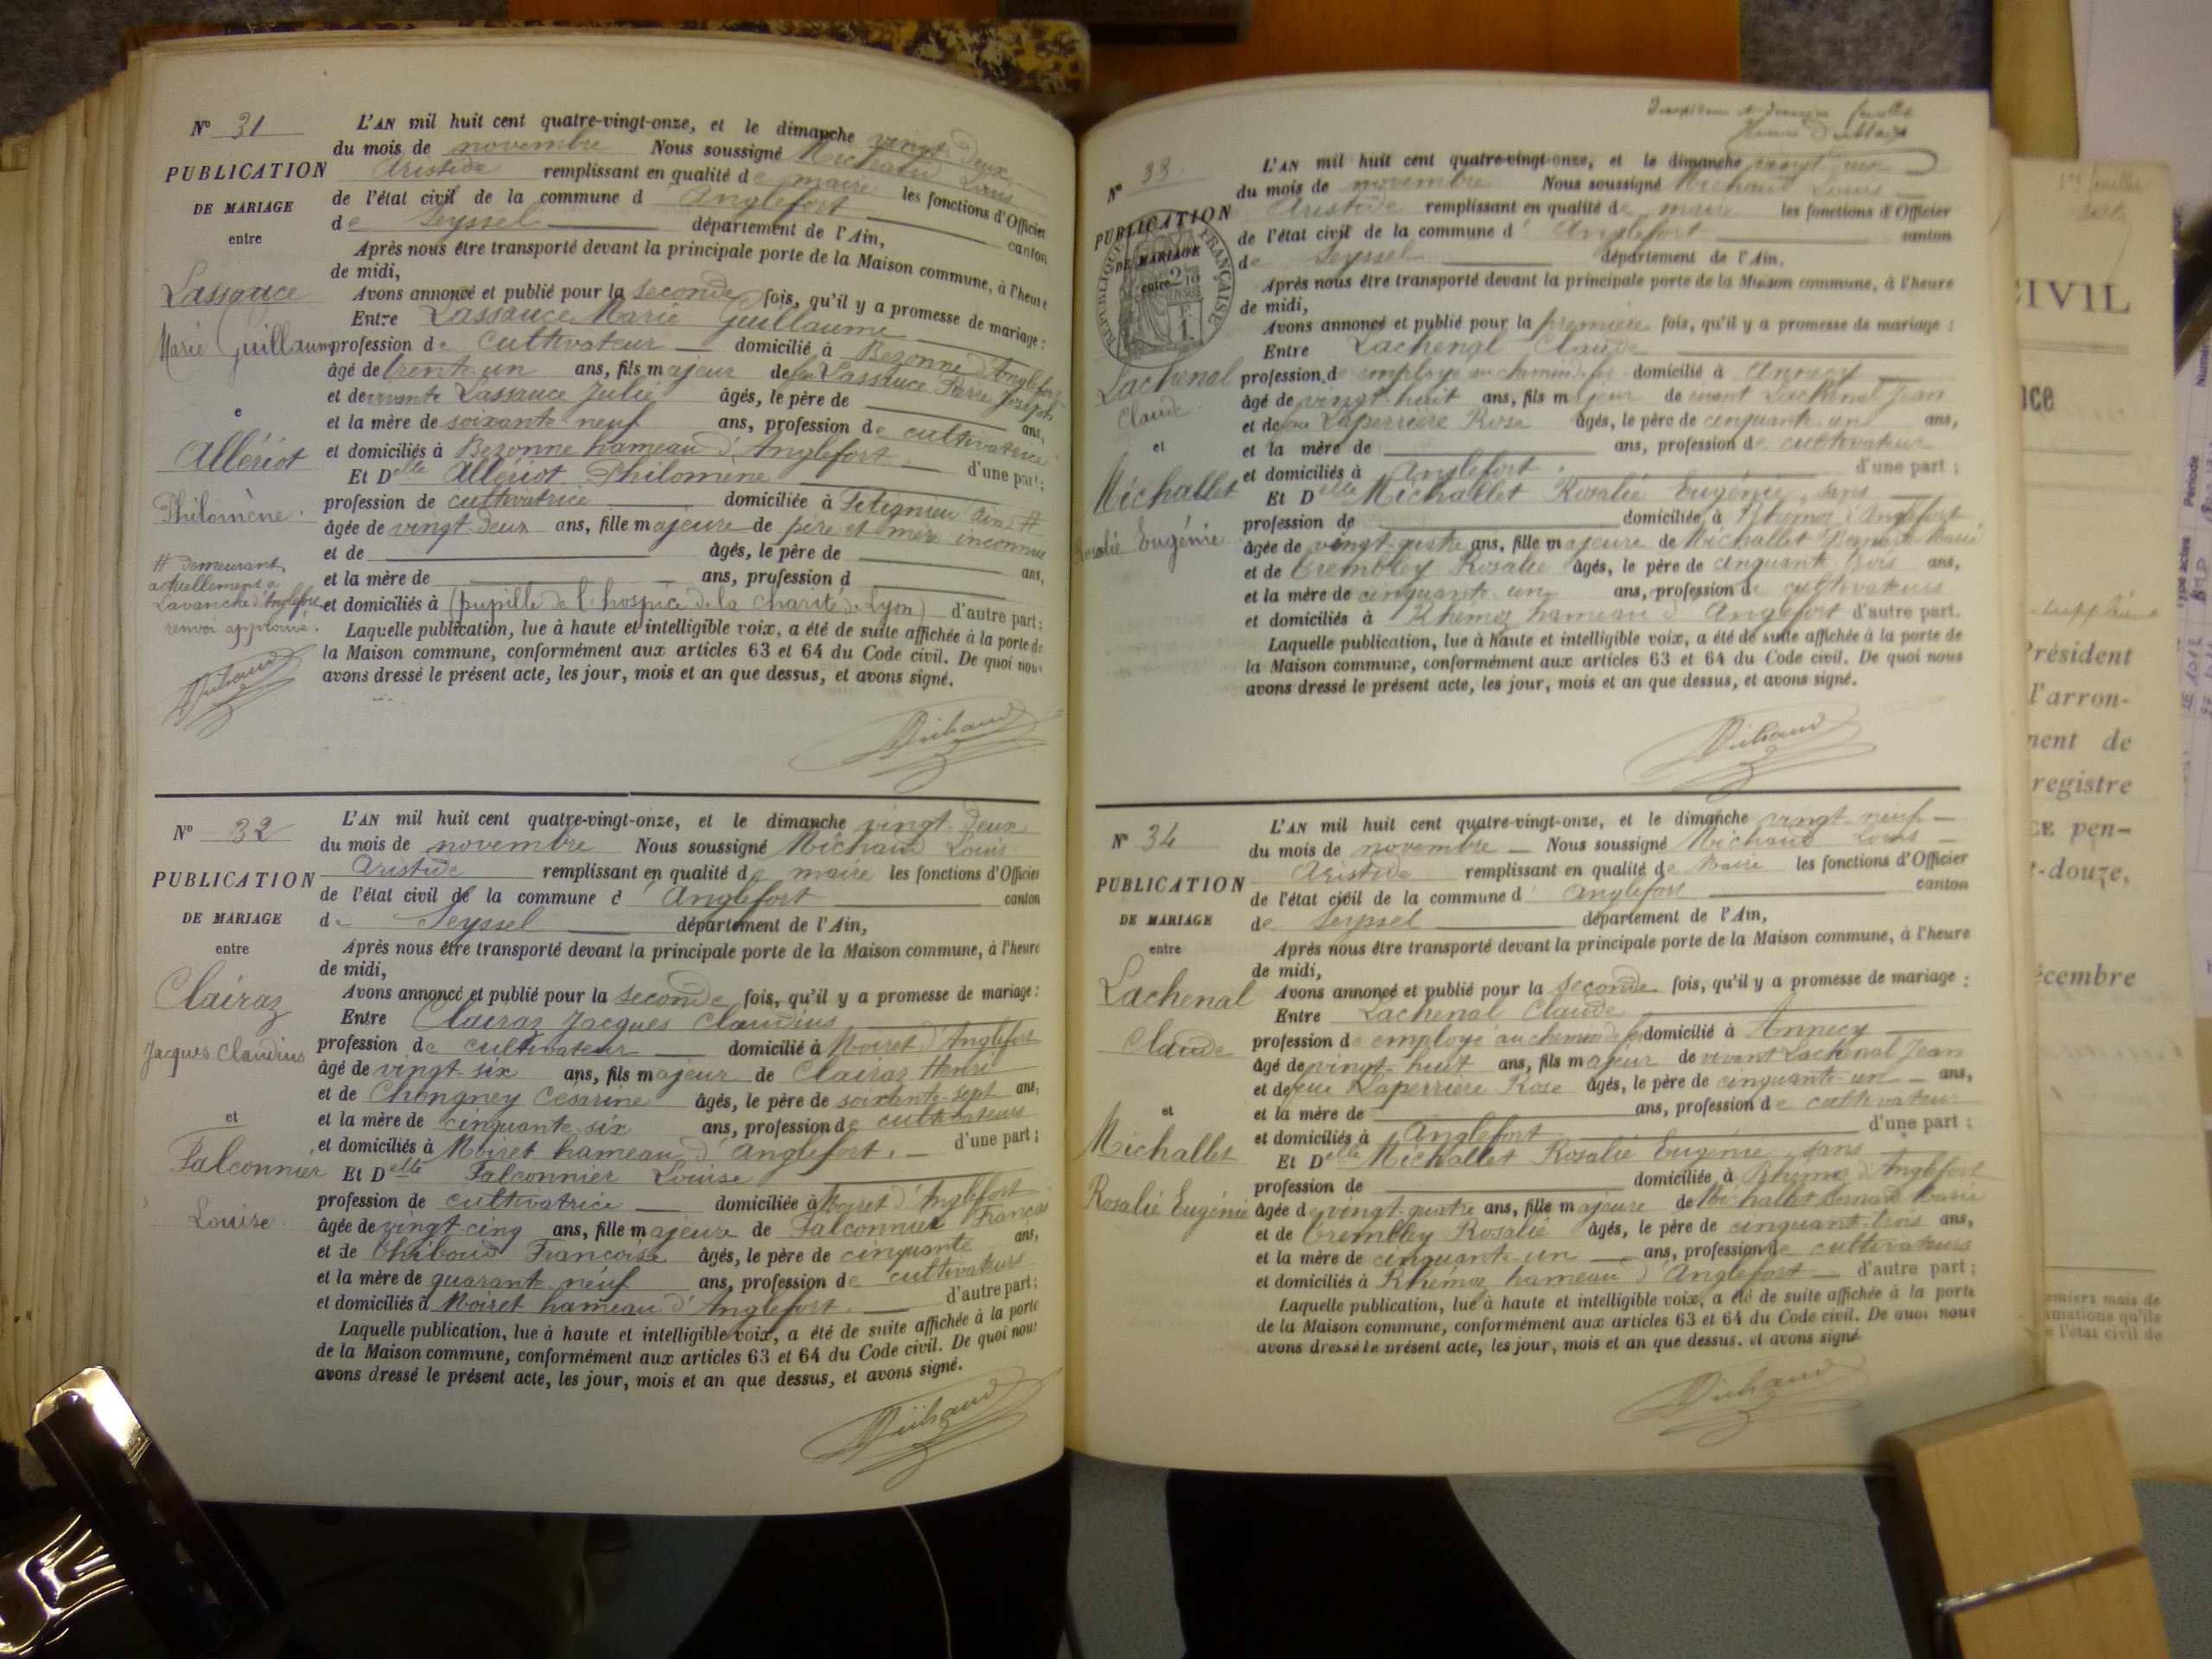 N° 31
PUBLICATION
DE MARIAGE
entre
Lassauce
Marie Guillaume
e
Allériot
Philomène.
# Demeurant
actuellement à
Lavanche d'Anglefort
renvoi approuvé.
Michaud
L'AN mil huit cent quatre-vingt-onze, et le dimanche vingt-deux
du mois de novembre Nous soussigné Michaud Louis
Aristide remplissant en qualité de maire les fonctions d'Officier
de l'état civil de la commune d'Anglefort canton
de Seyssel département de l'Ain,
Après nous être transporté devant la principale porte de la Maison commune, à l'heure
de midi,
Avons annoncé et publié pour la seconde fois, qu'il y a promesse de mariage :
Entre Lassauce Marie Guillaume
profession de cultivateur domicilié à Bezonne d'Anglefort
âgé de trente-un ans, fils majeur de feu Lassauce Pierre Joseph
et de vivante Lassauce Julie âgés, le père de ans,
et la mère de soixante-neuf ans, profession de cultivatrice
et domiciliés à Bezonne hameau d'Anglefort d'une part;
Et Delle Allériot Philomène
profession de cultivatrice domiciliée à Sitignieu Ain #
âgée de vingt-deux ans, fille majeure de père et mère inconnus
et de âgés, le père de ans,
et la mère de ans, profession d
et domiciliés à (pupille de l'hospice de la charité de Lyon) d'autre part;
Laquelle publication, lue à haute et intelligible voix, a été de suite affichée à la porte de
la Maison commune, conformément aux articles 63 et 64 du Code civil. De quoi nous
avons dressé le présent acte, les jour, mois et an que dessus, et avons signé.
Michaud
N° 32
PUBLICATION
DE MARIAGE
entre
Clairaz
Jacques Claudius
et
Falconnier
Louise.
L'AN mil huit cent quatre-vingt-onze, et le dimanche vingt-deux
du mois de novembre Nous soussigné Michaud Louis
Aristide remplissant en qualité de maire les fonctions d'Officier
de l'état civil de la commune d'Anglefort canton
de Seyssel département de l'Ain,
Après nous être transporté devant la principale porte de la Maison commune, à l'heure
de midi,
Avons annoncé et publié pour la seconde fois, qu'il y a promesse de mariage :
Entre Clairaz Jacques Claudius
profession de cultivateur domicilié à Moiret d'Anglefort
âgé de vingt-six ans, fils majeur de Clairaz Henri
et de Chongney Cesarine âgés, le père de soixante-sept ans,
et la mère de cinquante-six ans, profession de cultivateurs
et domiciliés à Moiret hameau d'Anglefort. d'une part ;
Et Delle Falconnier Louise
profession de cultivatrice domiciliée à Moiret d'Anglefort
âgée de vingt-cinq ans, fille majeure de Falconnier François
et de Thiboud Françoise âgés, le père de cinquante ans,
et la mère de quarante-neuf ans, profession de cultivateurs
et domiciliés à Moiret hameau d'Anglefort. d'autre part;
Laquelle publication, lue à haute et intelligible voix, a été de suite affichée à la porte
de la Maison commune, conformément aux articles 63 et 64 du Code civil. De quoi nous
avons dressé le présent acte, les jour, mois et an que dessus, et avons signé.
Michaud
et dernier feuillet
N° 33
PUBLICATION
DE MARIAGE
entre
RÉPUBLIQUE FRANÇAISE
Lachenal
Claude
et
Michallet
Rosalie Eugénie
L'AN mil huit cent quatre-vingt-onze, et le dimanche vingt-deux
du mois de novembre Nous soussigné Michaud Louis
Aristide remplissant en qualité de maire les fonctions d'Officier
de l'état civil de la commune d'Anglefort canton
de Seyssel département de l'Ain,
Après nous être transporté devant la principale porte de la Maison commune, à l'heure
de midi,
Avons annoncé et publié pour la première fois, qu'il y a promesse de mariage :
Entre Lachenal Claude
profession d employé au chemin de fer domicilié à Annecy
âgé de vingt-huit ans, fils majeur de vivant Lachenal Jean
et de feue Laperrière Rose âgés, le père de cinquante-un ans,
et la mère de ans, profession de cultivateur
et domiciliés à Anglefort. d'une part ;
Et Delle Michallet Rosalie Eugénie, sans
profession de domiciliée à Rhémoz d'Anglefort
âgée de vingt-quatre ans, fille majeure de Michallet Bernard Marie
et de Trembley Rosalie âgés, le père de cinquante-trois ans,
et la mère de cinquante-un ans, profession de cultivateurs
et domiciliés à Rhémoz hameau d'Anglefort d'autre part.
Laquelle publication, lue à haute et intelligible voix, a été de suite affichée à la porte de
la Maison commune, conformément aux articles 63 et 64 du Code civil. De quoi nous
avons dressé le présent acte, les jour, mois et an que dessus, et avons signé.
Michaud
N° 34
PUBLICATION
DE MARIAGE
entre
Lachenal
Claude
et
Michallet
Rosalie Eugénie
L'AN mil huit cent quatre-vingt-onze, et le dimanche vingt-neuf
du mois de novembre Nous soussigné Michaud Louis
Aristide remplissant en qualité de Maire les fonctions d'Officier
de l'état civil de la commune d'Anglefort canton
de Seyssel département de l'Ain,
Après nous être transporté devant la principale porte de la Maison commune, à l'heure
de midi,
Avons annoncé et publié pour la seconde fois, qu'il y a promesse de mariage :
Entre Lachenal Claude
profession d employé au chemin de fer domicilié à Annecy
âgé de vingt-huit ans, fils majeur de vivant Lachenal Jean
et de feue Laperrière Rose âgés, le père de cinquante-un ans,
et la mère de ans, profession de cultivateur
et domiciliés à Anglefort d'une part :
Et Delle Michallet Rosalie Eugénie, sans
profession de domiciliée à Rhémoz d'Anglefort
âgée de vingt-quatre ans, fille majeure de Michallet Bernard Marie
et de Trembley Rosalie âgés, le père de cinquante-trois ans,
et la mère de cinquante-un ans, profession de cultivateurs
et domiciliés à Rhémoz hameau d'Anglefort d'autre part ;
Laquelle publication, lue à haute et intelligible voix, a été de suite affichée à la porte
de la Maison commune, conformément aux articles 63 et 64 du Code civil. De quoi nous
avons dressé le présent acte, les jour, mois et an que dessus, et avons signé
Michaud
CIVIL
nce
Président
l'arron-
ment de
registre
CE pen-
t-douze,
écembre
emiers mois de
rmations qu'ils
e l'état civil de